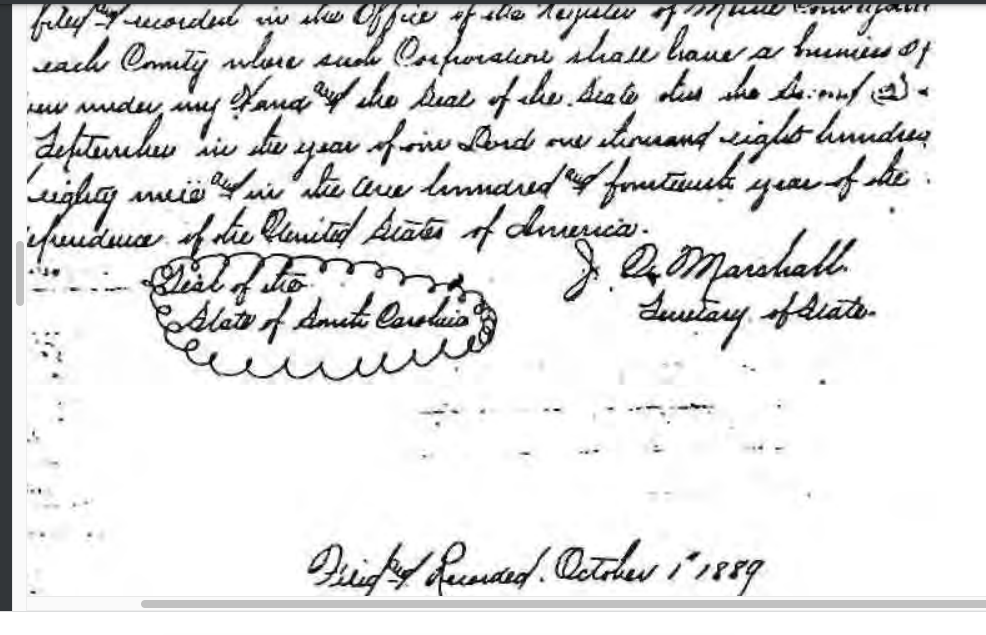 filed and recorded in the Office of the Register of Mesne Conveyance
each County where such Corporation shall have a business of
under my Hand and the Seal of the State this the Second (2)
September in the year of our Lord one thousand eight hundred
eighty nine and in the one hundred and fourteenth year of the
ependence of the United States of America.
Seal of the
State of South Carolina
J. Q. Marshall
Secretary of State.
Filed and Recorded. October 1st 1889